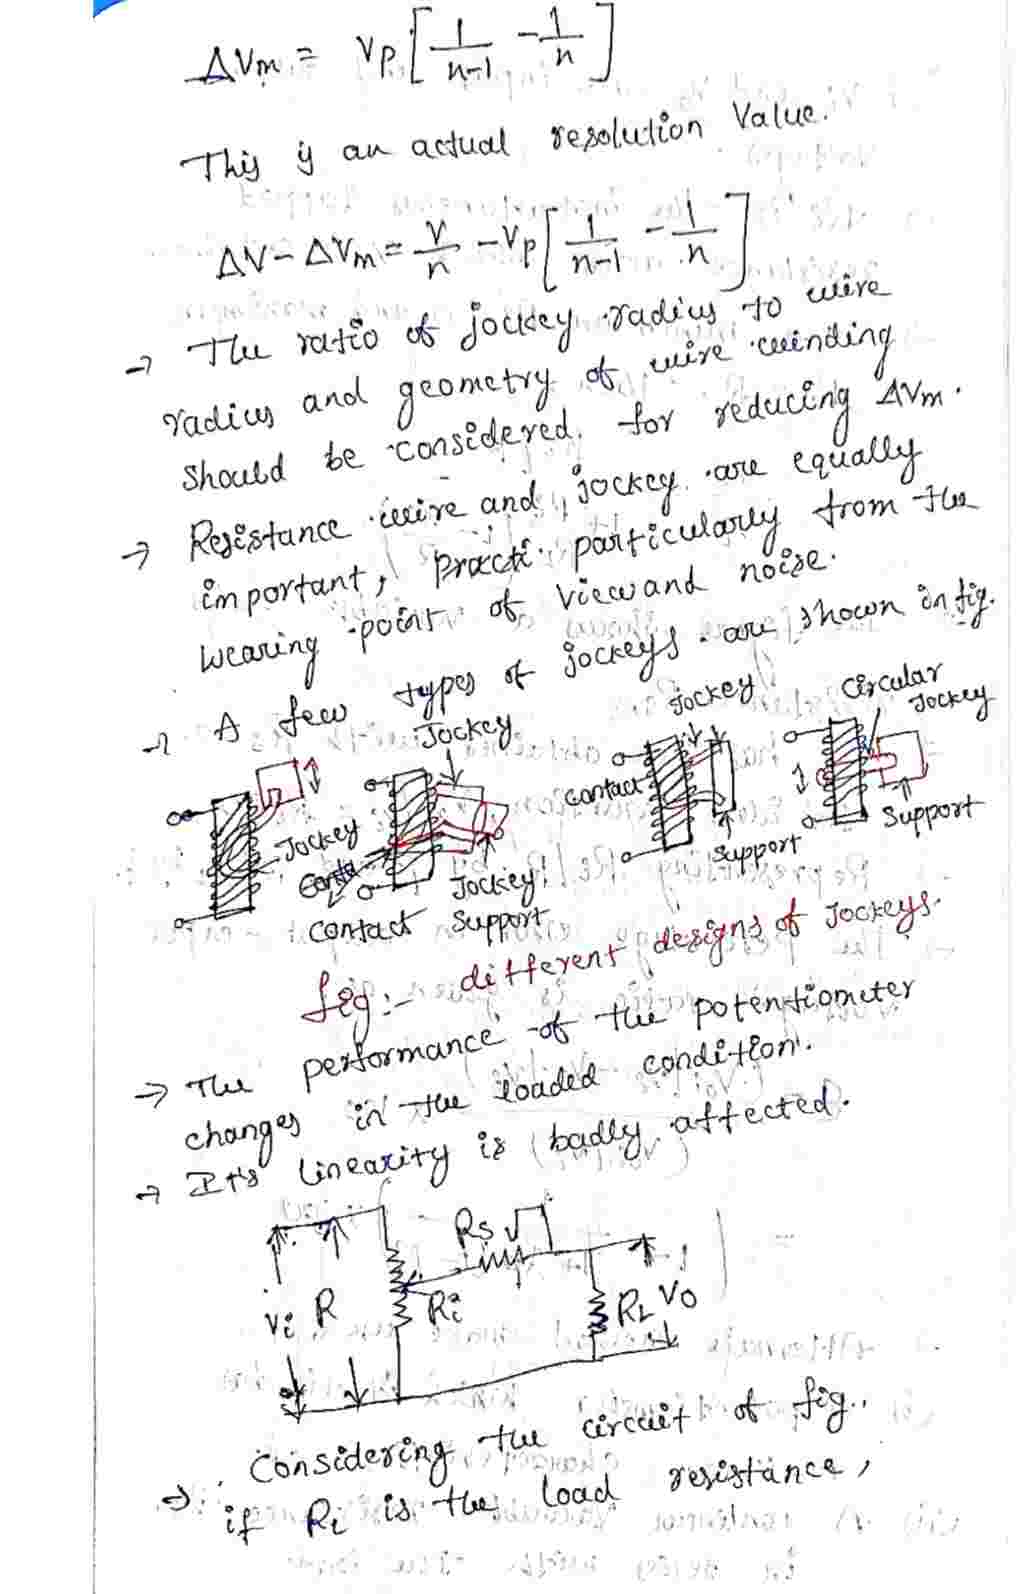 ΔVm = Vp[1/n-1 - 1/n]
This is an actual resolution Value.
ΔV - ΔVm = V/n - Vp[1/n-1 - 1/n]
→ The ratio of jockey radius to wire
radius and geometry of wire winding
should be considered. for reducing ΔVm.
→ Resistance wire and jockey are equally
important, practi particularly from the
wearing point of view and noise.
→ A few types of jockeys are shown in fig.
Jockey
Jockey
Circular
Jockey
Contact
Jockey
Conta
Support
Support
Jockey
Contact Support
fig:- different designs of Jockeys.
→ The performance of the potentiometer
changes in the loaded condition.
→ It's linearity is badly affected.
Rs
Vi R Ri RL Vo
→ Considering the circuit of fig.,
if Ri is the load resistance,